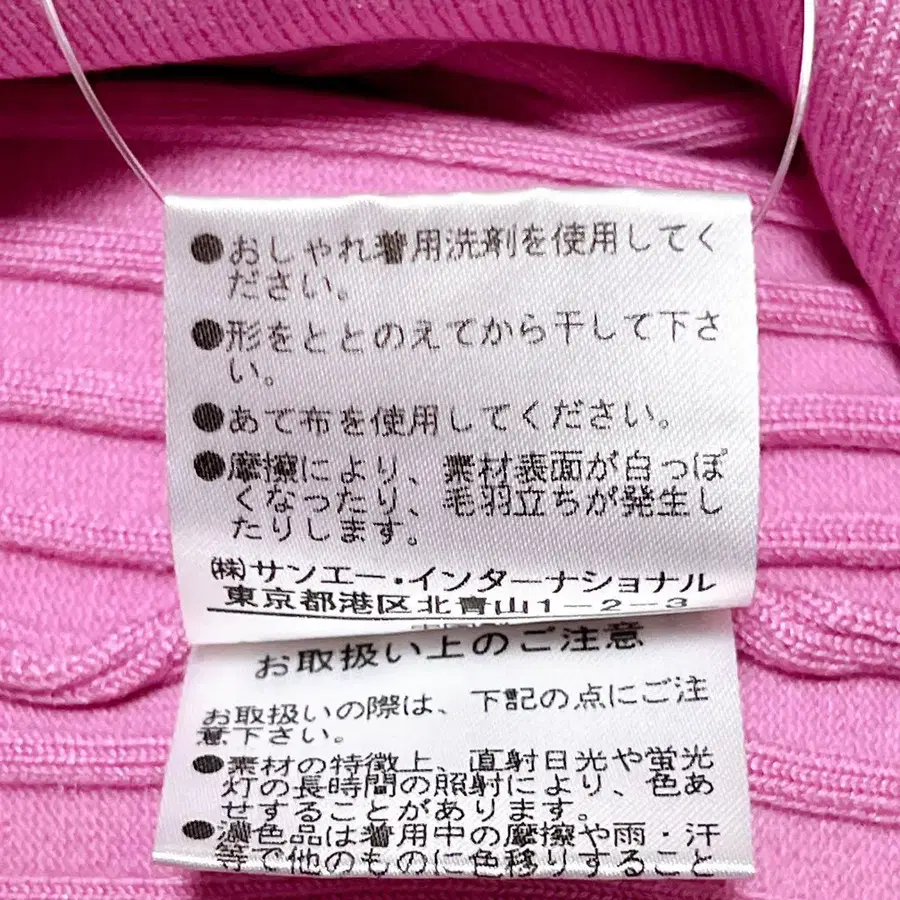 ●おしゃれ着用洗剤を使用してく
ださい。
●形をととのえてから干して下さ
い。
●あて布を使用してください。
●摩擦により、素材表面が白っぽ
くなったり、毛羽立ちが発生し
たりします。
㈱サンエー・インターナショナル
東京都港区北青山1-2-3
お取扱い上のご注意
お取扱いの際は、下記の点にご注
意下さい。
●素材の特徴上、直射日光や蛍光
灯の長時間の照射により、色あ
せすることがあります。
●濃色品は着用中の摩擦や雨・汗
等で他のものに色移りすること